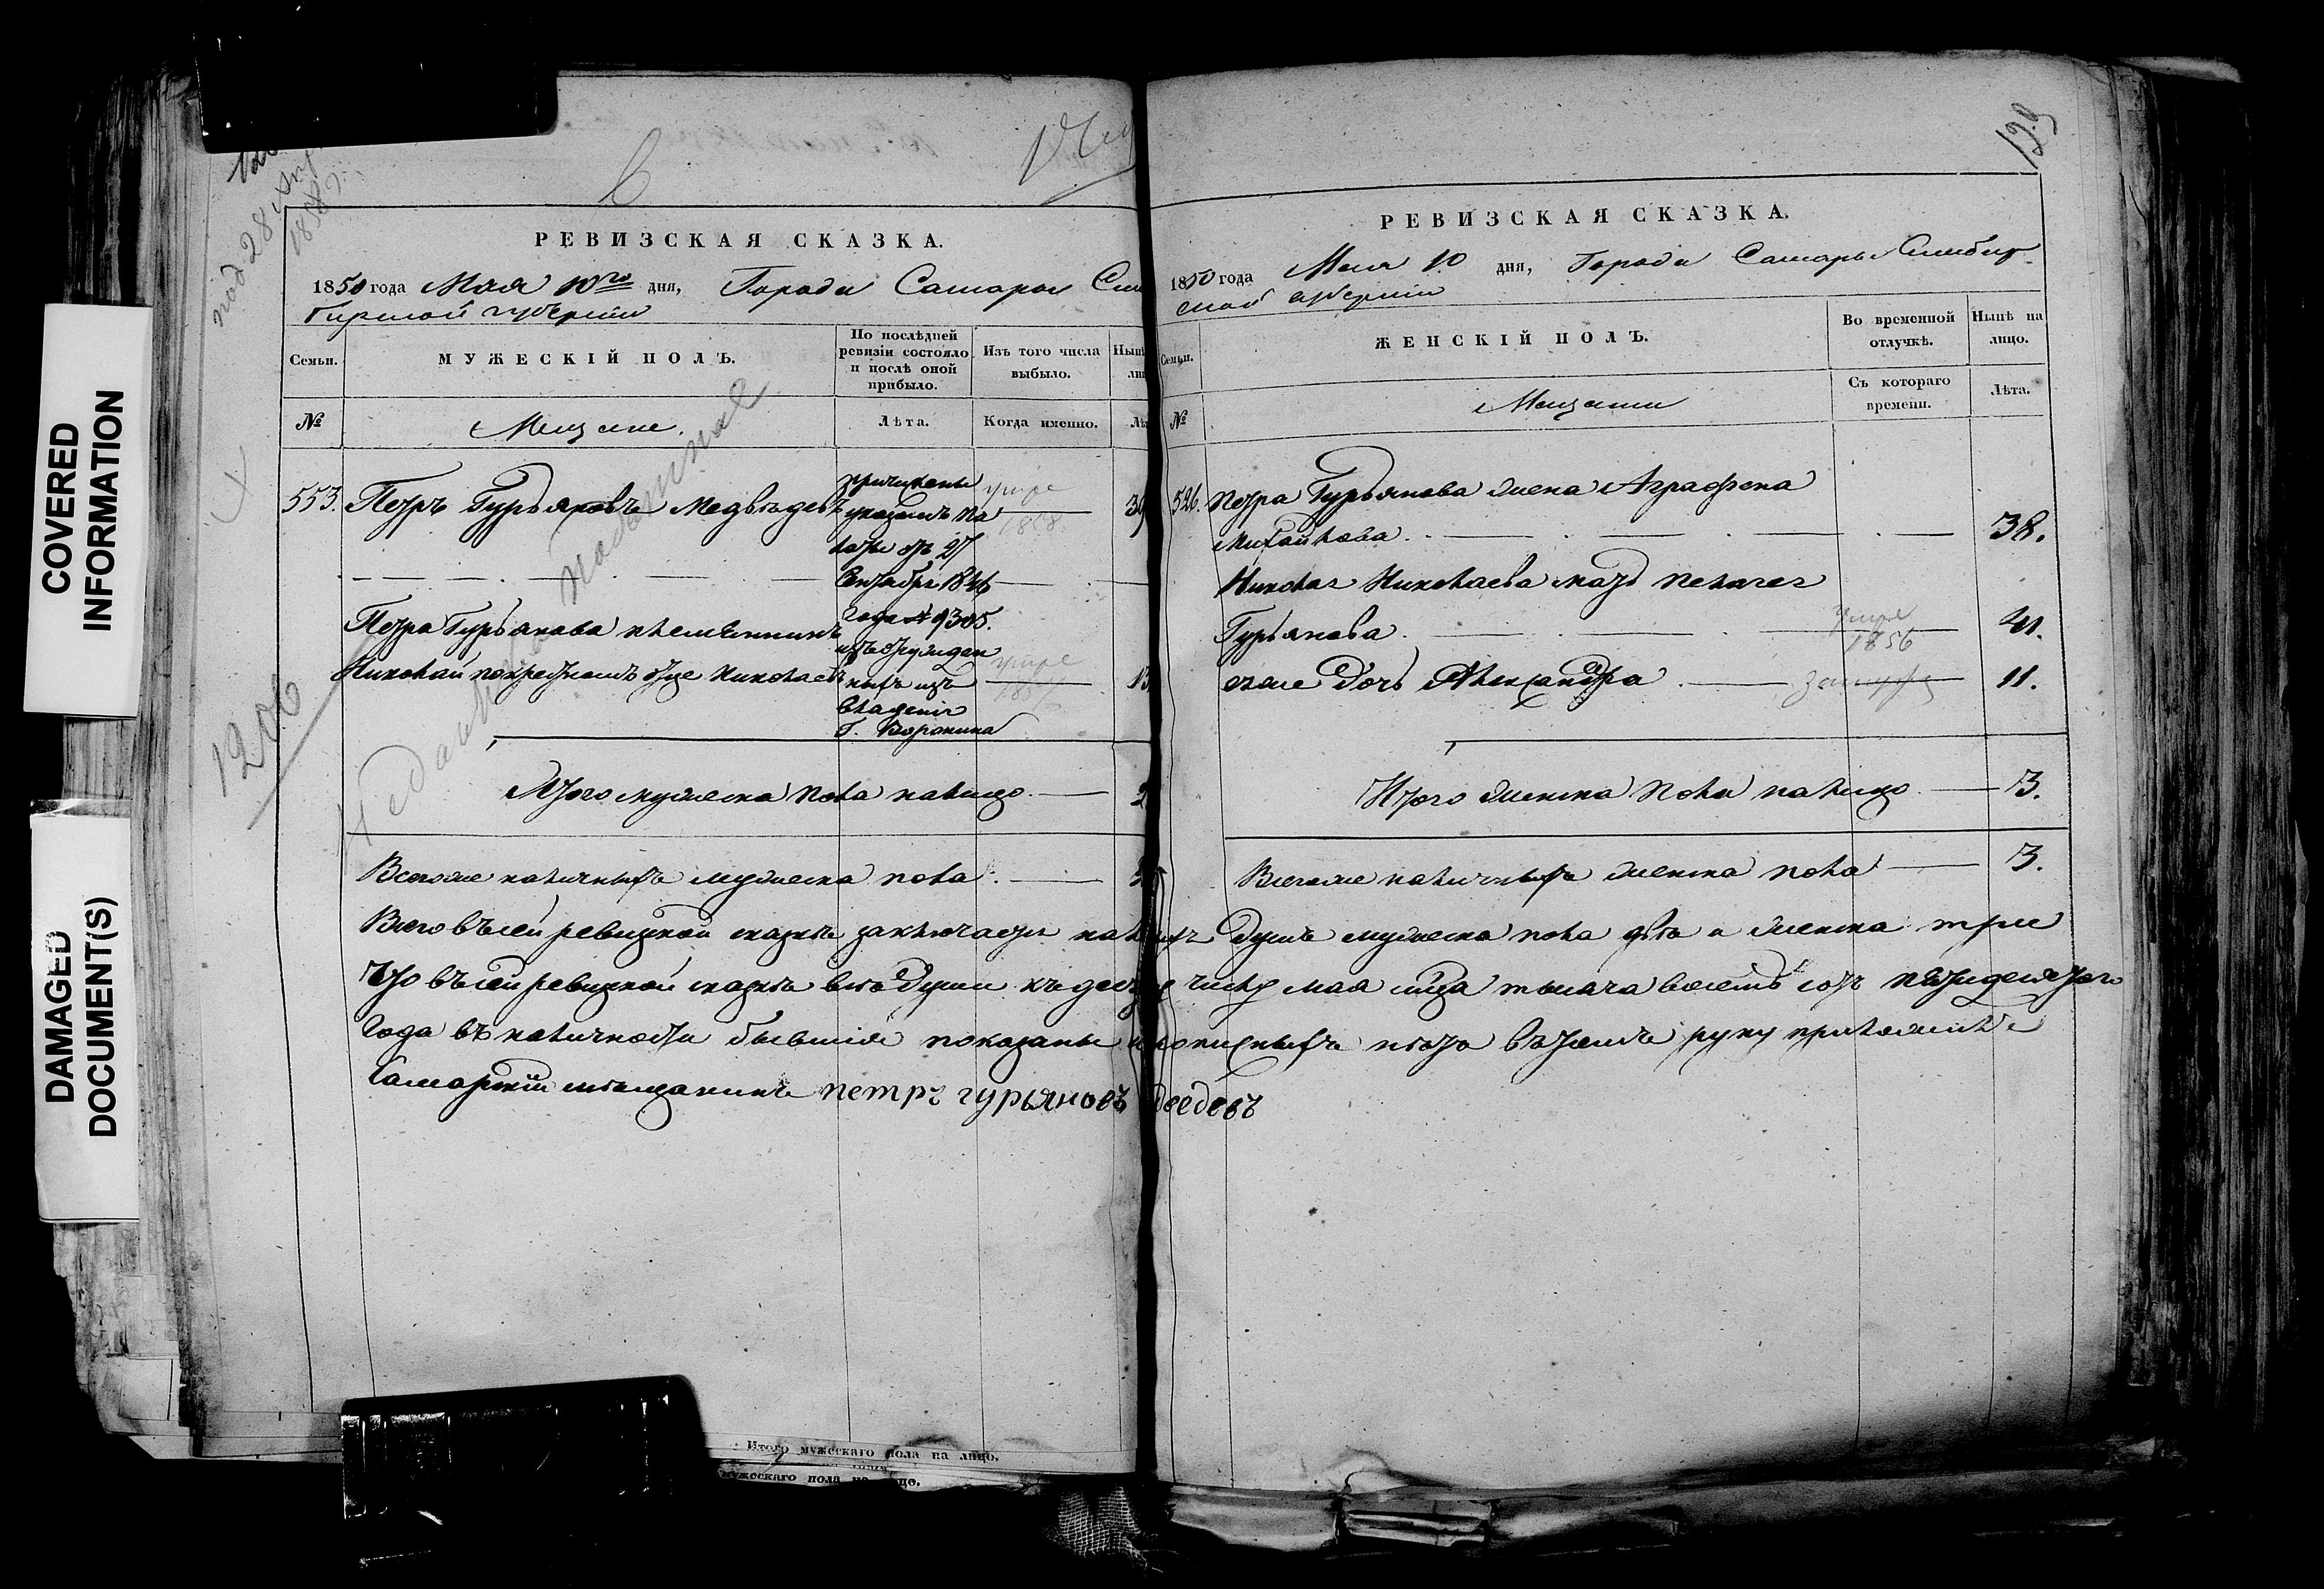 COVERED
INFORMATION
DAMAGED
DOCUMENT(S)
под 28
1858
1206
РЕВИЗСКАЯ СКАЗКА.
1850 года Мая 10го дня, Города Самары Сим
бирской губернии
Семьи.
МУЖЕСКІЙ ПОЛЪ.
По послѣдней
ревизіи состояло
и послѣ оной
прибыло.
Изъ того числа
выбыло.
№
Мещане.
Лѣта.
Когда именно.
553. Петръ Гурьяновъ Медвѣдевъ
причислены
указомъ па
латы отъ 27
Сентября 1846
года № 9305.
изъ
владенія
Г. Воронина
умре
1858
39
Петра Гурьянова племянникъ
Николай по крестномъ отце Николаевъ
умре
13
Итого мужеска пола налицо. — 2
Всего же наличныхъ мужеска пола. —
РЕВИЗСКАЯ СКАЗКА.
129
1850 года Мая 10 дня, Города Самары Симбир
ской губерніи
Семьи.
ЖЕНСКІЙ ПОЛЪ.
Во временной
отлучкѣ.
Нынѣ на
лицо.
№
Мещани
Съ котораго
времени.
Лѣта.
526. Петра Гурьянова жена Аграфена
Михайлова. 38.
Николая Николаева мать Пелагея
Гурьянова. умре 1856 41.
ее же дочь Александра замуж 11.
Итого женска пола налицо — 3.
Всего же наличныхъ женска пола — 3.
Всего въ сей ревизкой сказкѣ заключается душъ мужеска пола двѣ и женска три
Что въ сей ревизкой сказкѣ всѣ души къ числу мая мца тысяча восемь сотъ пятидесятого
года въ наличности бывшія показаны и прописныхъ нѣтъ въ томъ руку приложилъ
Самарскій мѣщанинъ петръ гурьяновъ
Итого мужескаго пола на лицо.
мужескаго пола на лицо.